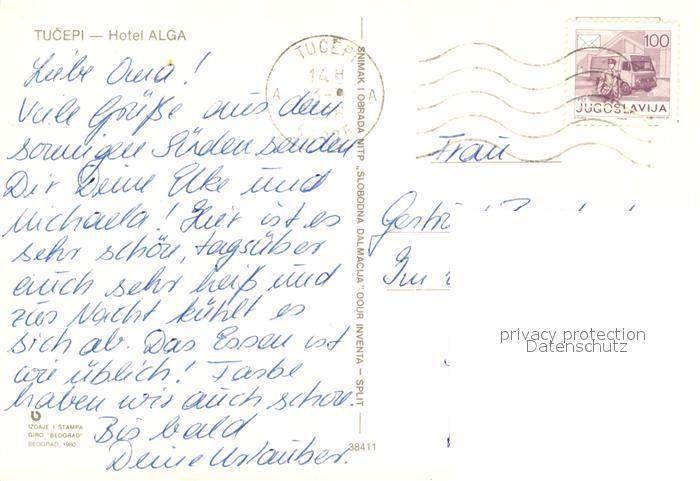 TUČEPI — Hotel ALGA
Liebe Oma!
Viele Grüße aus dem
sonnigen Süden senden
Dir Deine Elke und
Michaela! Hier ist es
sehr schön, tagsüber
auch sehr heiß und
zur Nacht kühlt es
sich ab. Das Essen ist
wie üblich! Farbe
haben wir auch schon.
Bis bald
Deine Urlauber.
IZDAJE I ŠTAMPA
GIRO "BEOGRAD"
BEOGRAD, 1980
38411
SNIMAK I OBRADA NITP „SLOBODNA DALMACIJA" OOUR INVENTA — SPLIT
TUČEPI
14 H
A A
100
JUGOSLAVIJA
Frau
Im
privacy protection
Datenschutz